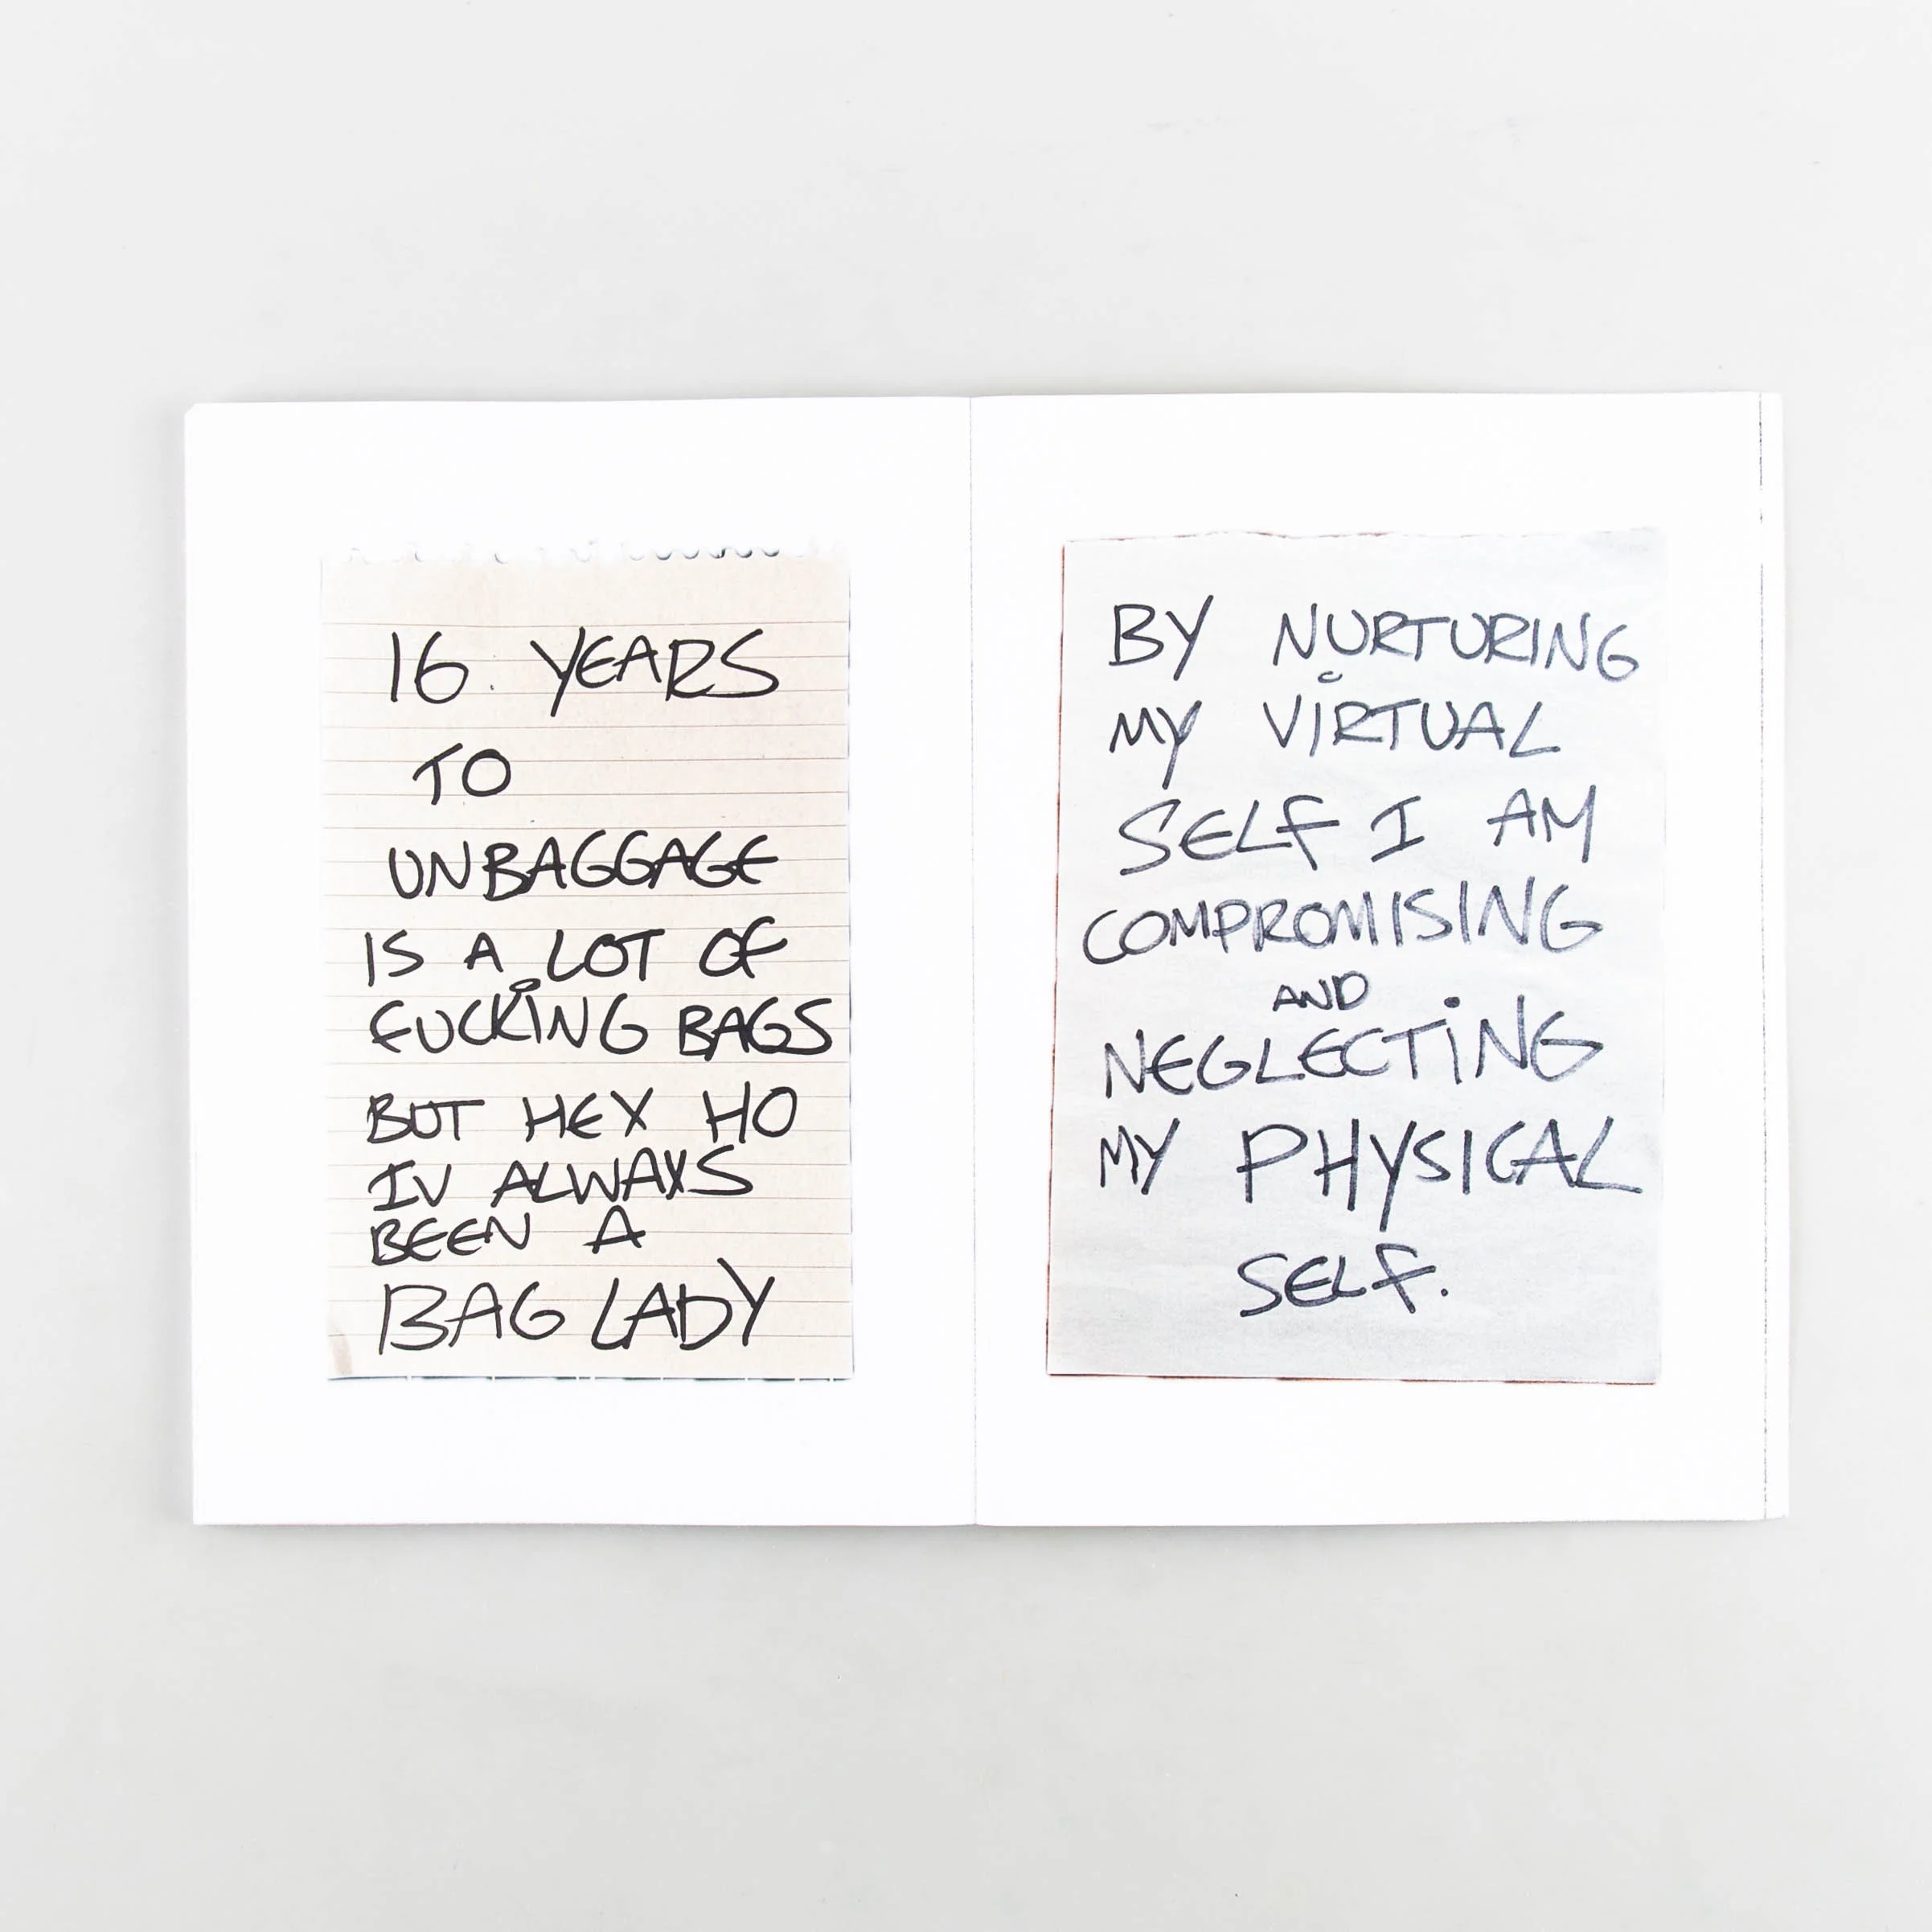 16. YEARS
TO
UNBAGGAGE
IS A LOT OF
FUCKING BAGS
BUT HEY HO
IV ALWAYS
BEEN A
BAG LADY
BY NURTURING
MY VIRTUAL
SELF I AM
COMPROMISING
AND
NEGLECTING
MY PHYSICAL
SELF.